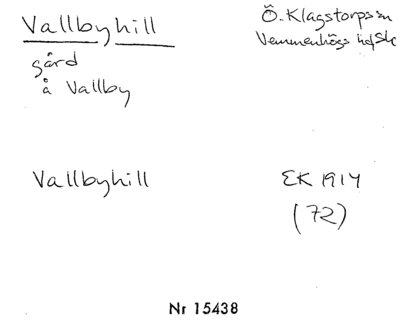 Vallbyhill
Ö. Klagstorps sn
Vemmenhögs hd Sk
gård
å Vallby
Vallbyhill
EK 1914
(72)
Nr 15438